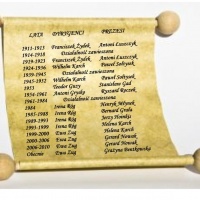 LATA DYRYGENCI PREZESI
1913-1915 Franciszek Żydek Antoni Łuszczyk
1914-1918 Działalność zawieszona
1919-1925 Franciszek Żydek Antoni Łuszczyk
1924-1926 Wilhelm Karch Paweł Sołtysek
1939-1945 Działalność zawieszona
1945-1951 Wilhelm Karch Paweł Sołtysek
1953 Teodor Guzy Stanisław Gad
1954-1961 Antoni Gryska Ryszard Ryczek
1961-1984 Działalność zawieszona
1984 Irena Róg Henryk Młynek
1984-1989 Irena Róg Bernard Grala
1989-1993 Irena Róg Jerzy Honski
1993-1999 Irena Róg Helena Karch
1999-2000 Ewa Zug Helena Karch
2000-2006 Ewa Zug Gerard Nowak
2006-2010 Ewa Zug Gerard Nowak
Obecnie Ewa Zug Grażyna